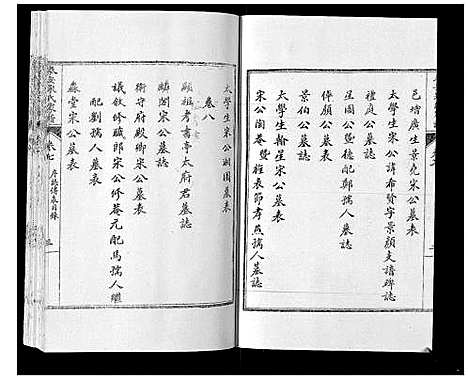 邑增廣生景堯宋公墓表
太學生宋公諱布賢字景顏支譜碑誌
禮庭公墓誌
星圃公暨德配鄭孺人墓誌
伴顏公墓表
景伯公墓表
太學生翰星宋公墓表
宋公陶菴暨旌表節孝燕孺人墓誌
太學生宋公樹園墓表
卷八
顯祖考書亭太府君墓誌
麟閣宋公墓表
衛守府殿卿宋公墓表
議敘修職郎宋公修菴元配馬孺人繼
配劉孺人墓表
淼堂宋公墓表
宋氏
卷七
序誌傳表目錄
三